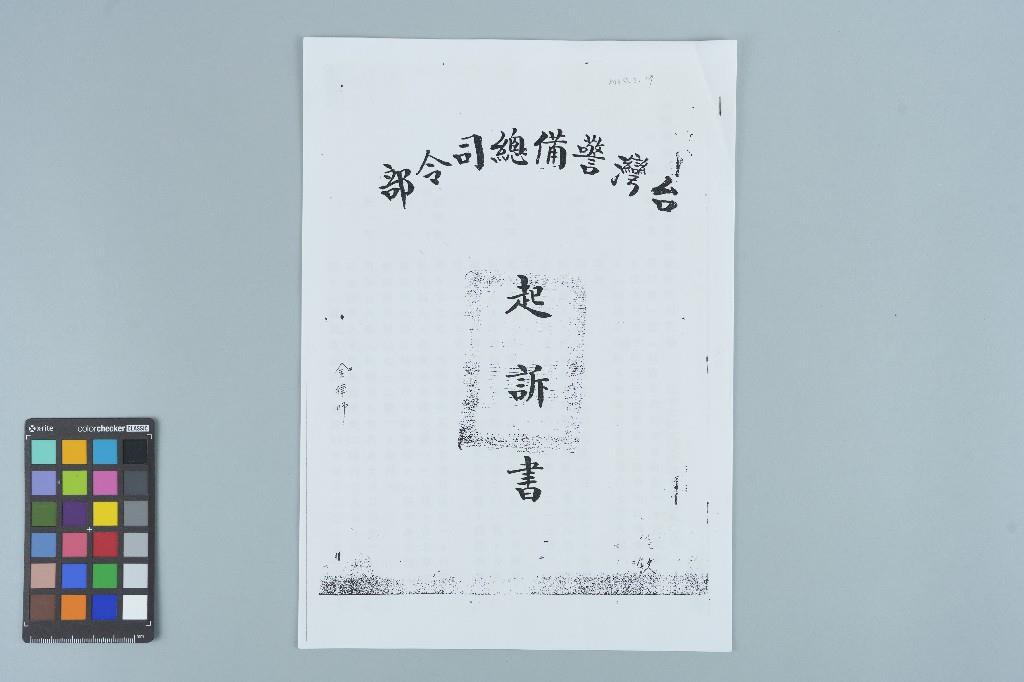 台灣警備總司令部
起訴書
金律師
x-rite
colorchecker CLASSIC
mm